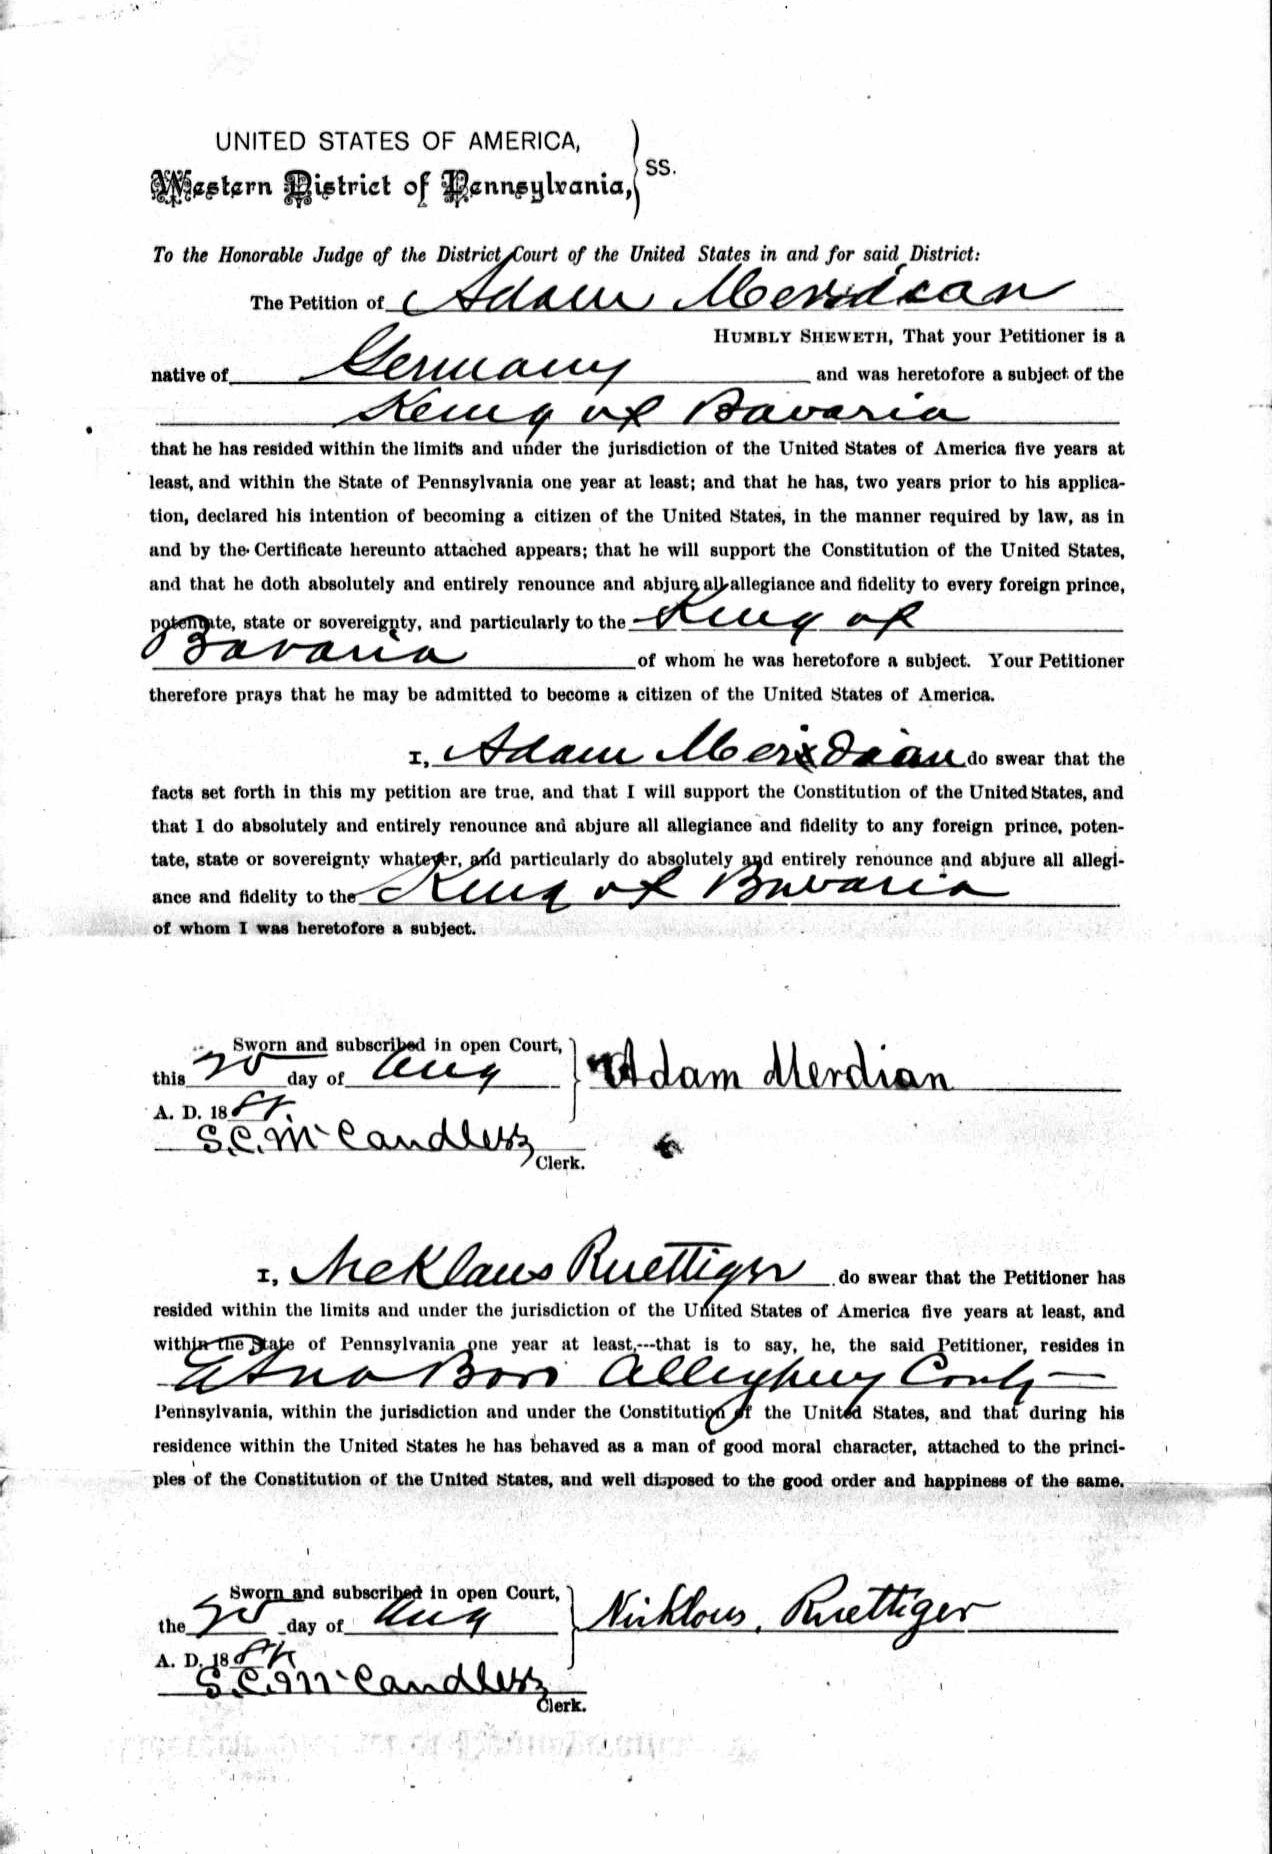 UNITED STATES OF AMERICA,
Western District of Pennsylvania, SS.
To the Honorable Judge of the District Court of the United States in and for said District:
The Petition of Adam Meridian
HUMBLY SHEWETH, That your Petitioner is a
native of Germany and was heretofore a subject of the
King of Bavaria
that he has resided within the limits and under the jurisdiction of the United States of America five years at
least, and within the State of Pennsylvania one year at least; and that he has, two years prior to his applica-
tion, declared his intention of becoming a citizen of the United States, in the manner required by law, as in
and by the Certificate hereunto attached appears; that he will support the Constitution of the United States,
and that he doth absolutely and entirely renounce and abjure all allegiance and fidelity to every foreign prince,
potentate, state or sovereignty, and particularly to the King of
Bavaria of whom he was heretofore a subject. Your Petitioner
therefore prays that he may be admitted to become a citizen of the United States of America.
I, Adam Meridian do swear that the
facts set forth in this my petition are true, and that I will support the Constitution of the United States, and
that I do absolutely and entirely renounce and abjure all allegiance and fidelity to any foreign prince, poten-
tate, state or sovereignty whatever, and particularly do absolutely and entirely renounce and abjure all allegi-
ance and fidelity to the King of Bavaria
of whom I was heretofore a subject.
Sworn and subscribed in open Court,
this day of Aug Adam Merdian
A. D. 18
S.C. McCandless
Clerk.
I, Nicklaus Ruettiger do swear that the Petitioner has
resided within the limits and under the jurisdiction of the United States of America five years at least, and
within the State of Pennsylvania one year at least,---that is to say, he, the said Petitioner, resides in
Etna Boro Allegheny County
Pennsylvania, within the jurisdiction and under the Constitution of the United States, and that during his
residence within the United States he has behaved as a man of good moral character, attached to the princi-
ples of the Constitution of the United States, and well disposed to the good order and happiness of the same.
Sworn and subscribed in open Court,
the day of Aug Nicklous Ruettiger
A. D. 18
S.C. McCandless
Clerk.